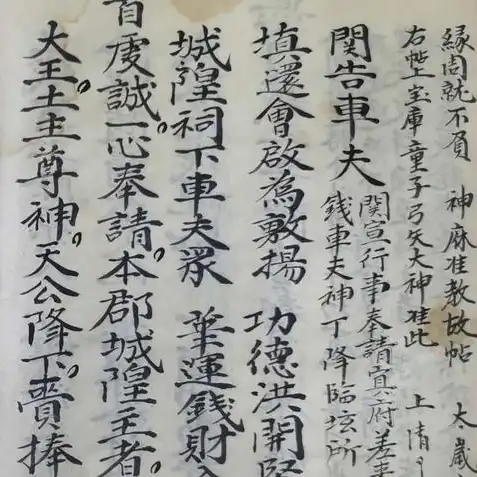 緣周就不負 神麻准教故帖 太歲
右帖上宝庫童子弓矢大神准此 上清
関告車夫 関宣行事奉請冥府差来
錢車夫神丁降臨坛所
填還會啟為敷揚 功德洪開
城隍祠下車夫眾 運錢財
首虔誠。一心奉請。本郡城隍主者。
大王。土主尊神。天公降下。賷捧